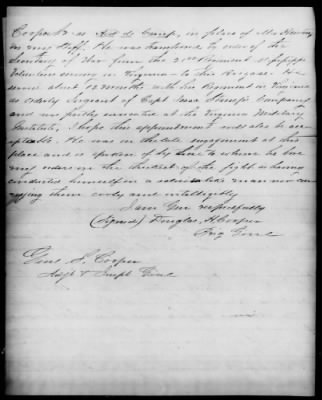 Cooper Jr as Aid de Camp, in place of Mr
on my Staff. He was transferred by order of the
Secretary of War from the 21st Regiment Mississippi
Volunteers serving in Virginia to this Brigade. He
served about 12 months with his Regiment in Virginia
as Orderly Sergeant of Capt Isaac Company
and was partly educated at the Virginia Military
Institute. I hope this appointment will also be acc
eptable. He was in the late engagement at this
place and is spoken of by Line to whom he bore
my orders in the thickest of the fight as having
conducted himself in a soldier like manner con
veying them cooly and intelligently
I am Genl respectfully
(Signed) Douglas H. Cooper
Brig Genl
Genl S. Cooper
Adjt & Inspt Genl